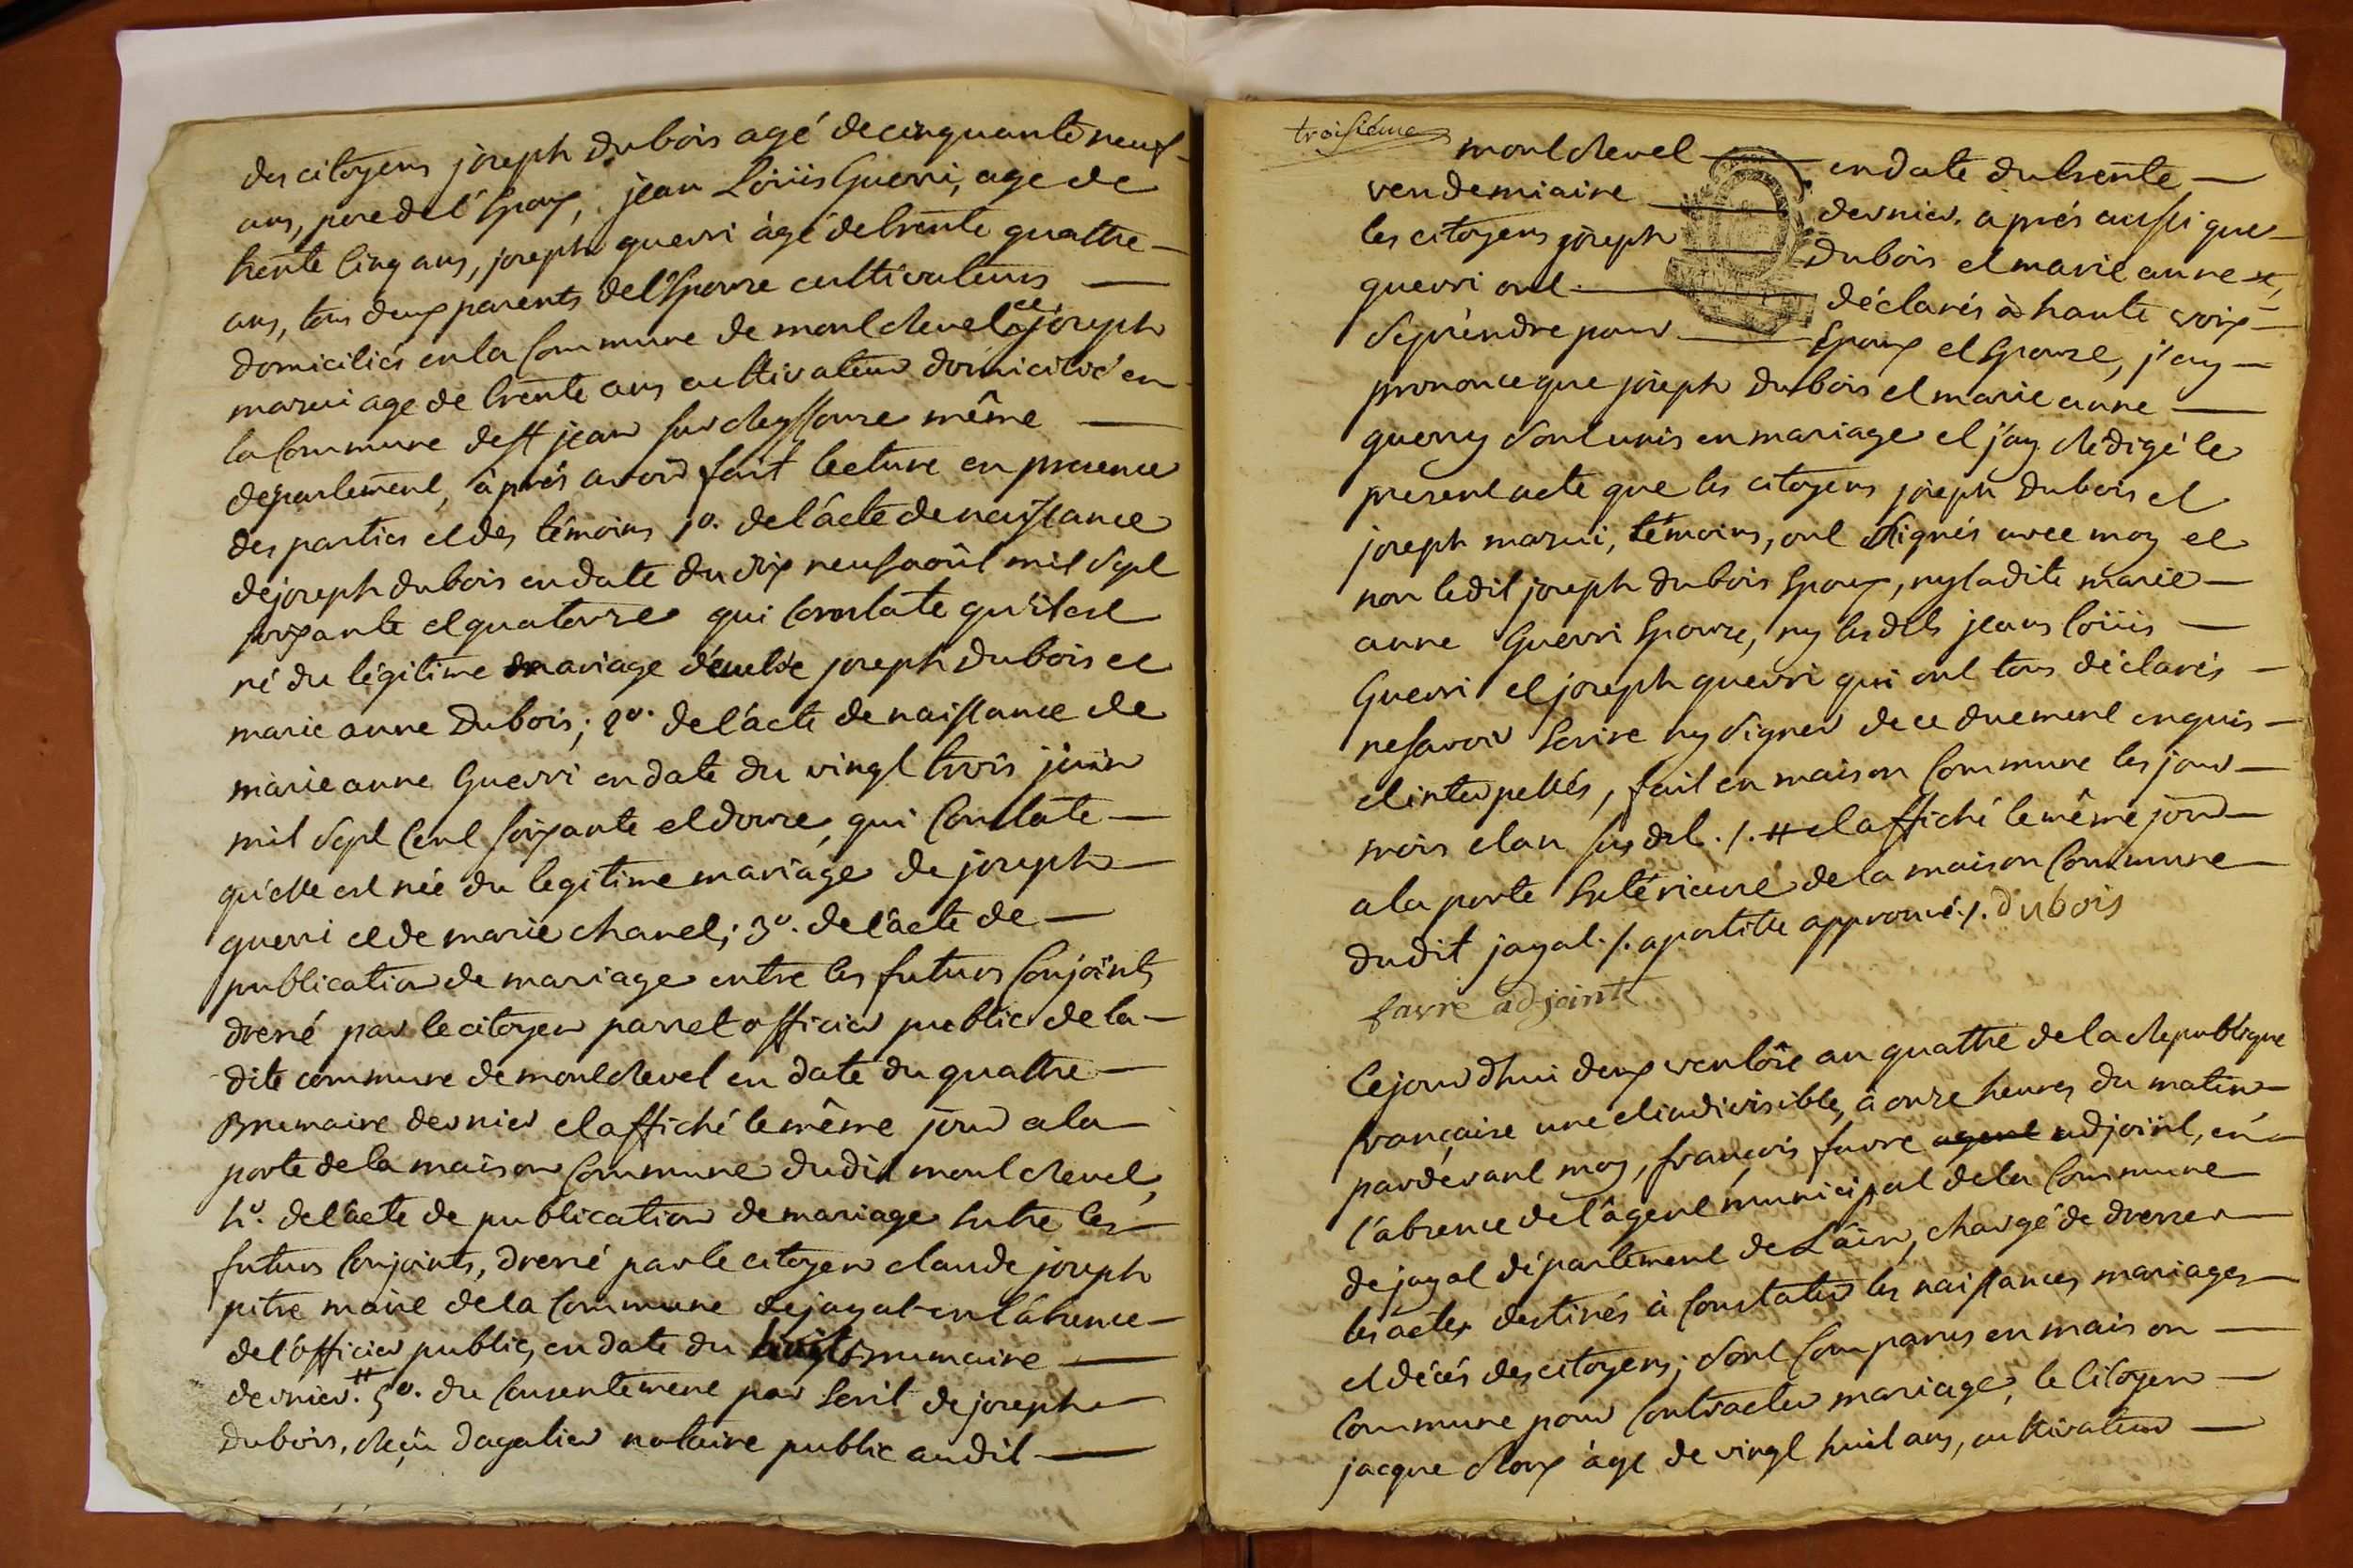 des citoyens joseph dubois agé de cinquante neuf
ans, pere de l'Epoux, jean Loüis Guerri, age de
trente Cinq ans, joseph guerri àgé de trente quattre
ans, tous deux parents de l'Epouze cultivateurs
domiciliés en la Commune de montrevel et joseph
marui age de trente ans cultivateur domicilié en
la Commune de st jean sur reyssouze même
département, àprés avoir fait lecture en presence
des parties et des témoins 1º. de l'ácte de naissance
de joseph dubois en date du dix neuf août mil sept
soixante et quatorze qui Constate qu'il est
né du légitime mariage d'entre joseph dubois et
marie anne Dubois; 2º. de l'ácte de naissance de
marie anne Guerri en date du vingt trois juin
mil sept Cent soixante et douze, qui Constate
qu'elle est née du legitime mariage de joseph
guerri et de marie chanel; 3º. de l'ácte de
publication de mariage entre les futurs Conjoints
dressé par le citoyen parret officier public de la
dite commune de montrevel en date du quattre
Brumaire dernier et affiché le même jour a la
porte de la maison Commune dudit montrevel,
4º. de l'ácte de publication de mariage Entre les
futurs Conjoints, dressé par le citoyen claude joseph
pitre maire de la Commune de jayat en l'ábsence
de l'officier public, en date du huit brumaire
dernier. # 5º. du Consentement par Ecrit de joseph
dubois, reçu dagalier notaire public audit
troisiéme
montrevel en date du trente
vendemiaire dernier, àprés aussi que
les citoyens joseph Dubois et marie anne
guerri ont déclarés à haute voix
se prendre pour Epoux et Epouze, j'ay
prononce que joseph dubois et marie anne
guerry sont unis en mariage et j'ay rédigé le
present acte que les citoyens joseph dubois et
joseph marui, témoins, ont signés avec moy et
non ledit joseph dubois Epoux, ny ladite marie
anne Guerri Epouze, ny lesdits jean loüis
Guerri et joseph guerri qui ont tous déclarés
ne savoir Ecrire ny signer de ce duement enquis
et interpellés, fait en maison Commune les jour
mois et an susdit ./. # et affiché le même jour
a la porte Extérieure de la maison Commune
dudit jayat ./. apostille approuvé ./. dubois
favre adjoint
Cejourdhui deux ventôse an quattre de la republique
française une et indivisible, à onze heures du matin
pardevant moy, françois favre agent adjoint, en
l'ábsence de l'ágent municipal de la Commune
de jayat département de L'ain, chargé de dresser
les actes destinés à Constater les naissances, mariages
et décés des citoyens; sont Comparus en maison
Commune pour Contracter mariage, le Citoyen
jacque roux àgé de vingt huit ans, cultivateur